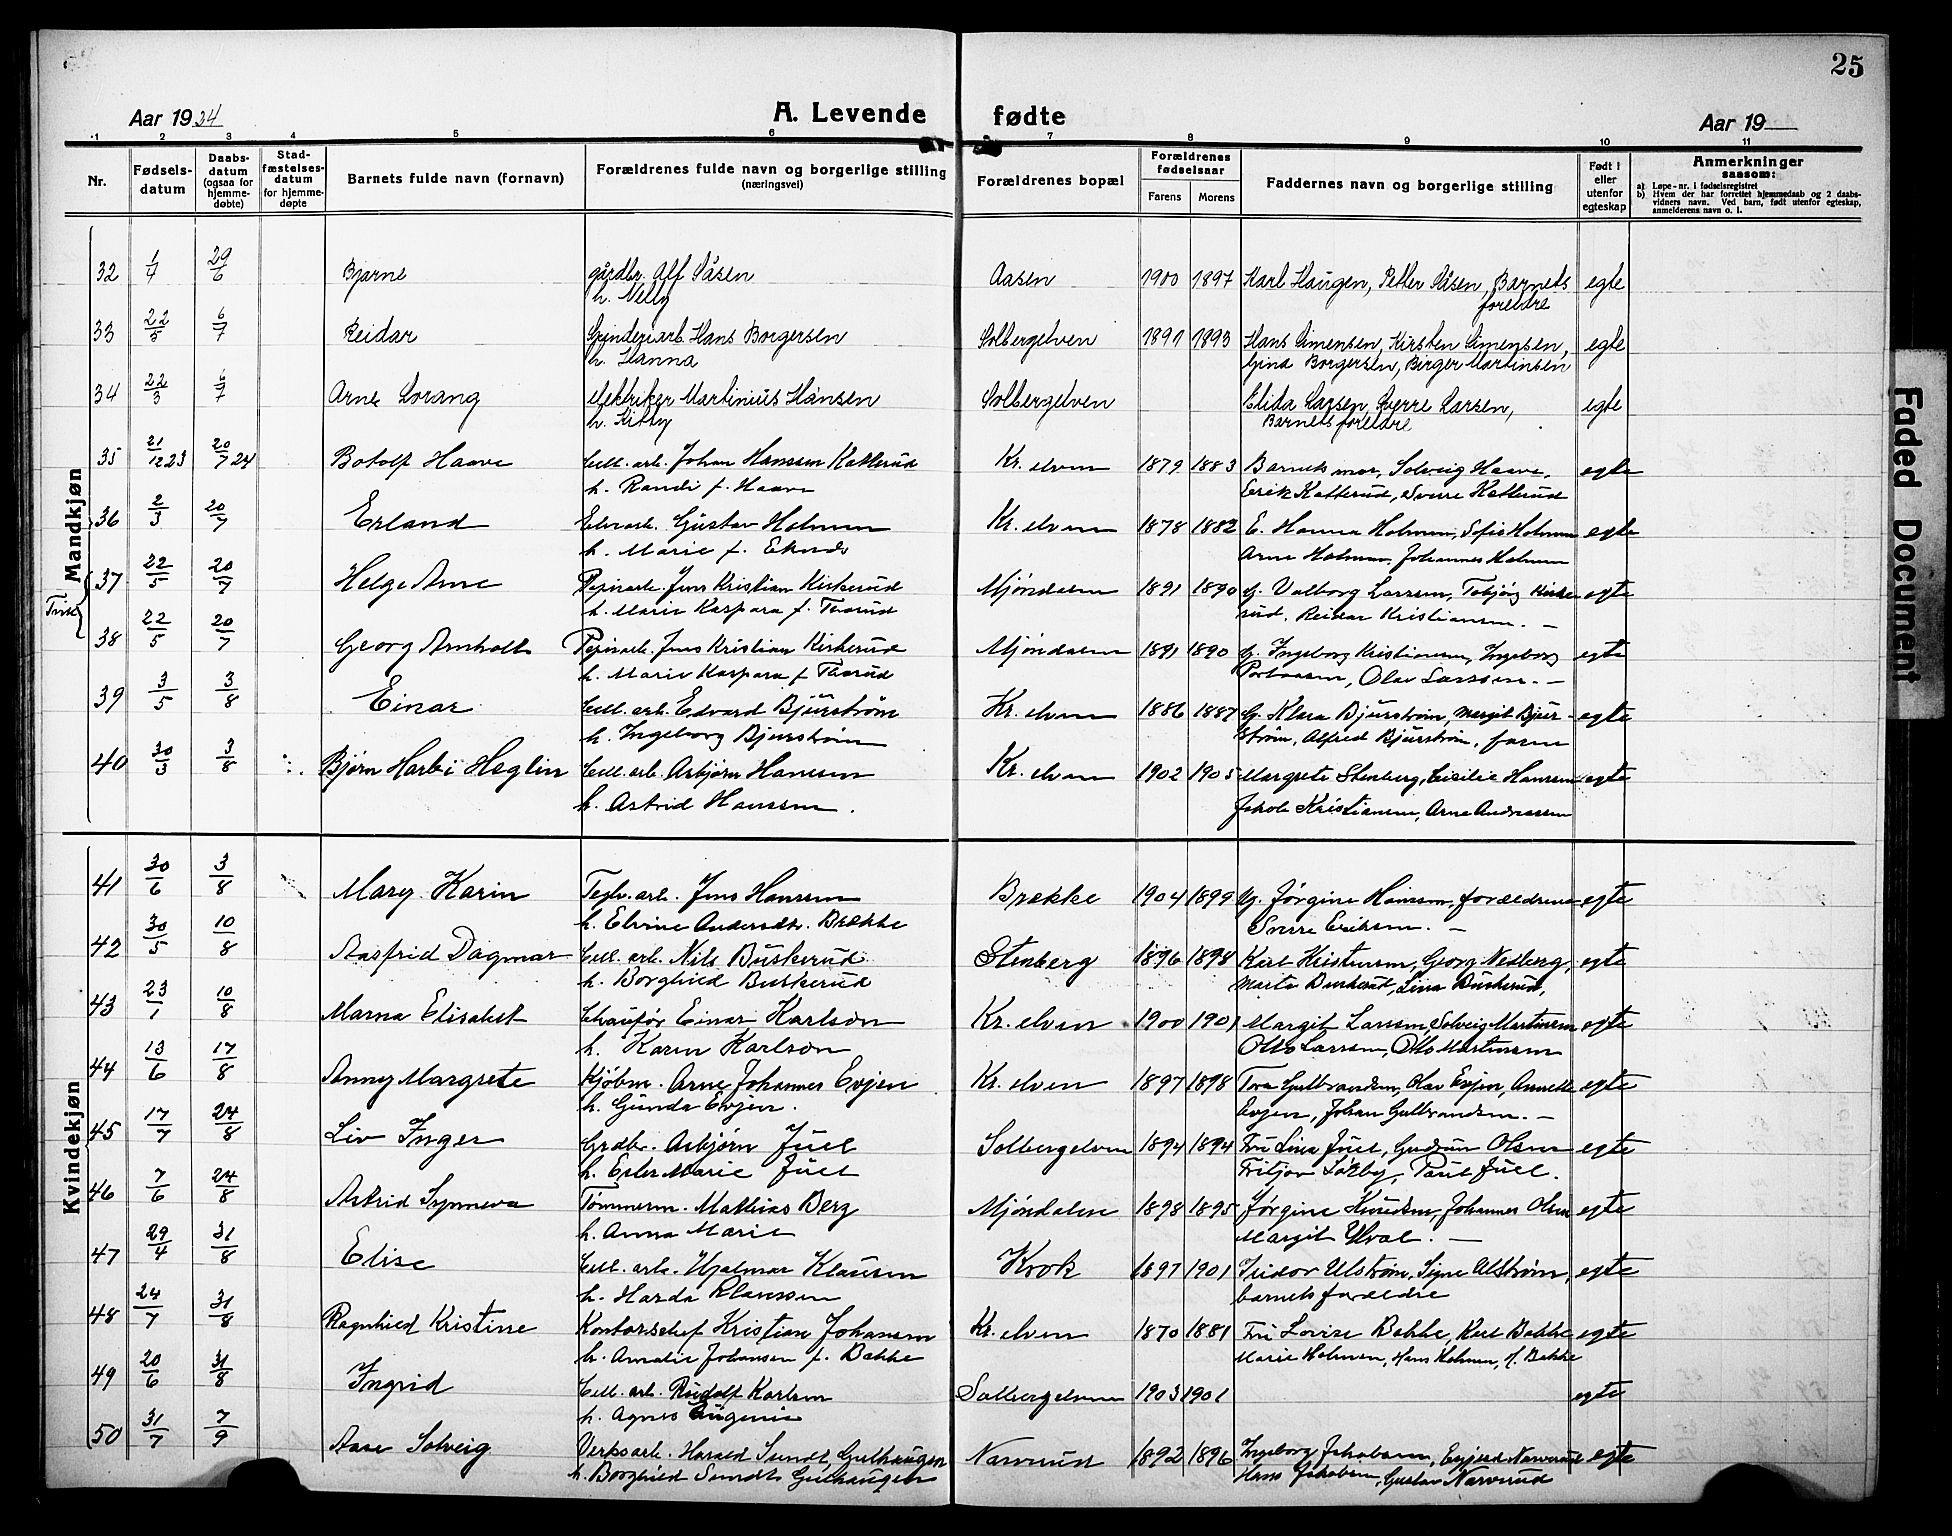 25
Aar 1924
A. Levende fødte
Aar 19
1 2 3 4 5 6 7 8 9 10 11
Nr.
Fødsels-
datum
Daabs-
datum
(ogsaa for
hjemme-
døbte)
Stad-
fæstelses-
datum
for hjemme-
døpte
Barnets fulde navn (fornavn)
Forældrenes fulde navn og borgerlige stilling
(næringsvei)
Forældrenes bopæl
Forældrenes
fødselsaar
Farens Morens
Faddernes navn og borgerlige stilling
Født i
eller
utenfor
egteskap
Anmerkninger
saasom:
a) Løpe-nr. i fødselsregistret
b) Hvem der har forrettet hjemmedaab og 2 daabs-
vidners navn. Ved barn, født utenfor egteskap,
anmelderens navn o. l.
Mandkjøn
32 1/4 29/6 Bjarne gårdbr. Alf Åsen Aasen 1900 1897 Karl Haugen, Petter Åsen, Barnets egte
h. Nelly foreldre
33 22/5 6/7 Reidar Spinderiarb. Hans Borgersen Solbergelven 1891 1893 Hans Simensen, Kirsten Simensen, egte
h. Hanna Borgersen, Birger Martinsen
34 22/3 6/7 Arne Lorang elektriker Martinius Hansen Solbergelven Elida Larsen, Sverre Larsen, egte
h. Kitty Barnets foreldre
35 21/12 23 20/7 24 Botolf Haave Cell. arb. Johan Hanssen Katterud Kr. elven 1879 1883 Barnets mor, Solveig Haave, egte
h. Randi f. Haave Erik Katterud, Sverre Katterud
36 2/3 20/7 Erland Elvearb. Gustav Holmen Kr. elven 1878 1882 E. Hanna Holmen, Sofie Holmen egte
h. Marie f. Arne Holmen, Johannes Holmen
37 22/5 20/7 Helge Arne Papirarb. Jens Kristian Kirkerud Mjøndalen 1891 1890 Valborg Larssen, Kirke- egte
h. Marie Kaspara f. Taarud rud, Reidar Kristiansen. –
38 22/5 20/7 Georg Arnholt Papirarb. Jens Kristian Kirkerud Mjøndalen 1891 1890 Ingeborg Kristiansen, Ingeborg egte
h. Marie Kaspara f. Taarud Olav Larssen. –
39 3/5 3/8 Einar Cell. arb. Edvard Bjurstrøm Kr. elven 1886 1887 Klara Bjurstrøm, Margit Bjur- egte
h. Ingeborg Bjurstrøm strøm, Alfred Bjurstrøm, faren
40 30/3 3/8 Bjørn Harbi Heglin Cell. arb. Asbjørn Hanssen Kr. elven 1902 1905 Margrete Stenberg, Cecilie Hanssen egte
h. Astrid Hanssen. Jakob Kristiansen, Arne Andreassen
Kvindekjøn
41 30/6 3/8 Mary Karin Teglv. arb. Jens Hanssen Brække 1904 1899 Jørgine Hanssen, forældrene egte
h. Elvine Andersdtr. Brække Sverre Eriksen. –
42 30/5 10/8 Aasfrid Dagmar Cell. arb. Nils Buskerud Stenberg 1896 1898 Karl Kristensen, Georg Nedberg, egte
h. Borghild Buskerud Marta Buskerud, Lina Buskerud,
43 23/1 10/8 Marna Elisabet Chaufør Einar Karlson Kr. elven 1900 1901 Margit Larssen, Solveig Martinsen egte
h. Karin Karlson Otto Larssen, Otto Martinsen
44 13/6 17/8 Anny Margrete Kjøbm. Arne Johannes Evjen Kr. elven 1897 1898 Tora Gulbrandsen, Olav Evjen, Annette egte
h. Gunda Evjen. Evjen, Johan Gulbrandsen. –
45 17/7 24/8 Liv Inger Grdbr. Asbjørn Juel Solbergelven 1894 1894 Fru Lina Juel, Gudrun Olsen egte
h. Ester Marie Juel Fritjov Solby, Paul Juel.
46 7/6 24/8 Astrid Synneva Tømmerm. Mathias Berg Mjøndalen 1898 1895 Jørgine Knudsen, Johannes Olsen egte
h. Anna Marie Margit Hval. –
47 29/4 31/8 Elise Cell. arb. Hjalmar Klausen Krok 1897 1901 Isidor Ulstrøm, Signe Ulstrøm, egte
h. Harda Klaussen barnets forældre
48 24/7 31/8 Ragnhild Kristine Kontorchef Kristian Johansen Kr. elven 1870 1881 Fru Lovise Bakke, Karl Bakke egte
h. Amalie Johansen f. Bakke Marie Holmen, Hans Holmen, H. Bakke
49 20/6 31/8 Ingrid Cell. arb. Rudolf Karlsen Solbergelven 1903 1901 egte
h. Agnes Eugenie
50 31/7 7/9 Aase Solveig Verksarb. Harald Sundt Gulhaugen Narverud 1892 1896 Ingeborg Jakobsen, Narverud egte
h. Borghild Sundt Gulhaugen Hans Jakobsen, Gustav Narverud
Faded Document